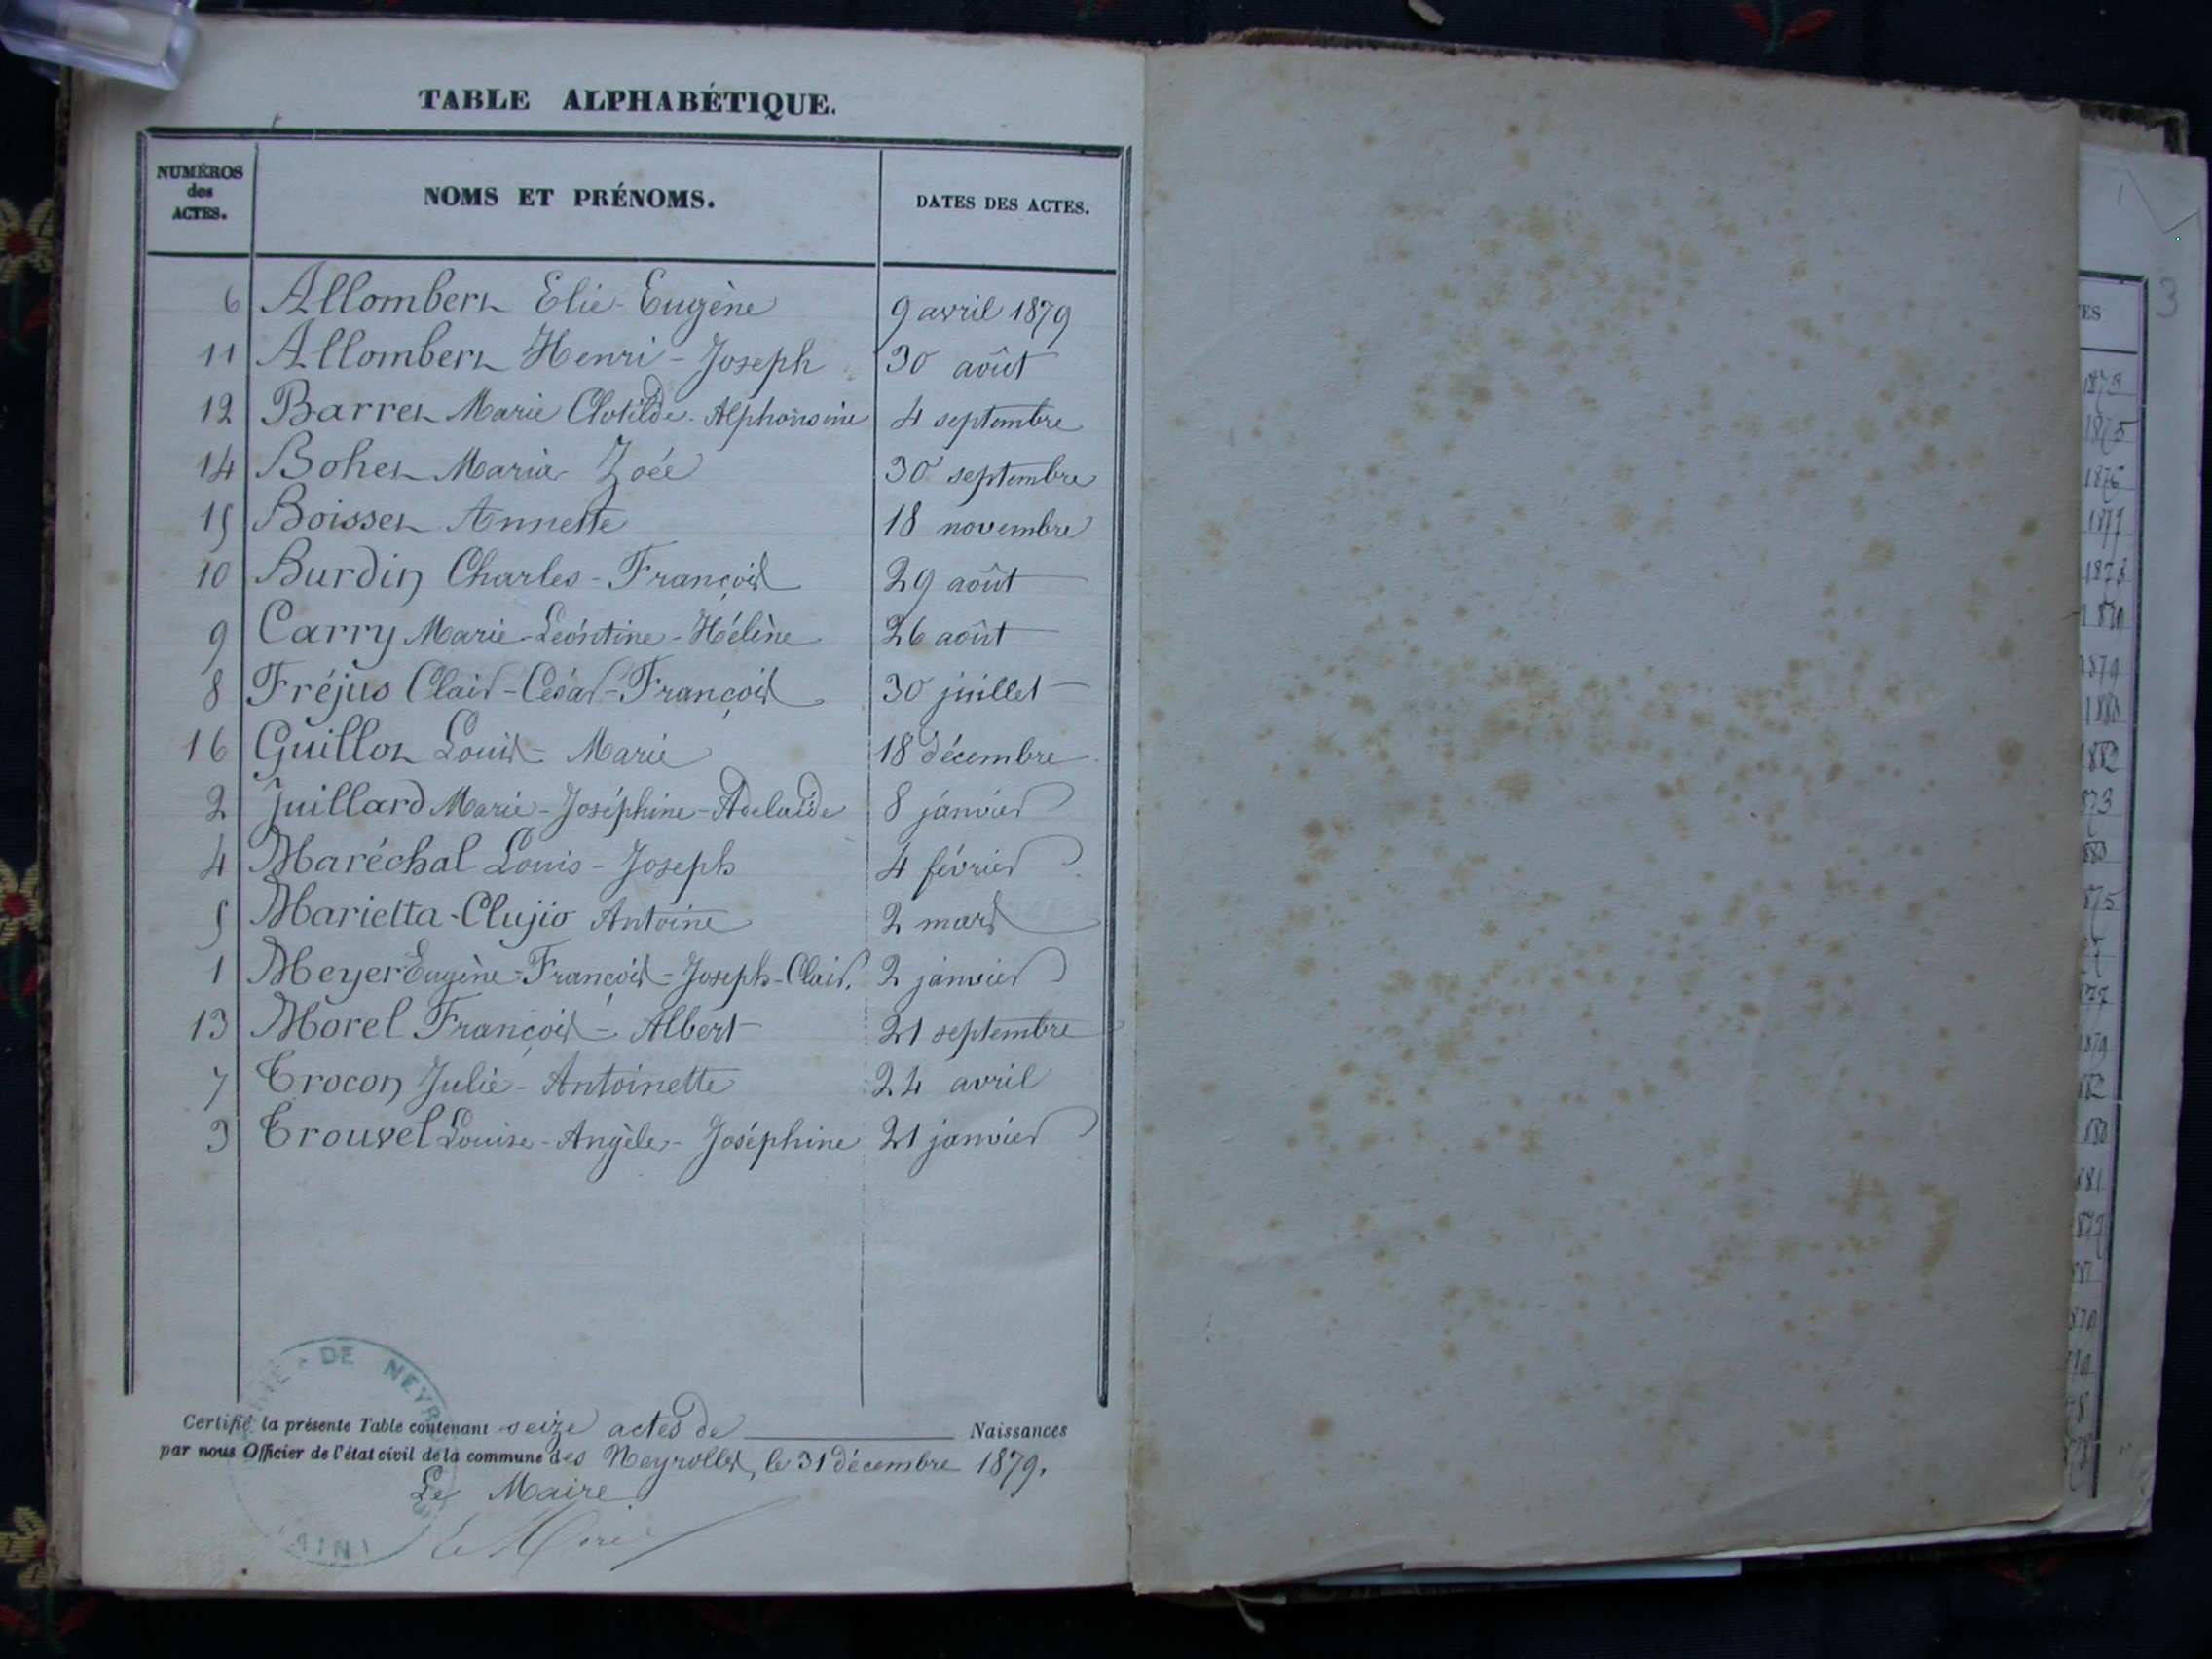 TABLE ALPHABÉTIQUE.
NUMÉROS des ACTES. NOMS ET PRÉNOMS. DATES DES ACTES.
6 Allombert Elie-Eugène 9 avril 1879
11 Allombert Henri-Joseph 30 août
12 Barret Marie Clotilde-Alphonsine 4 septembre
14 Bohet Maria Zoée 30 septembre
15 Boisset Annette 18 novembre
10 Burdin Charles-François 29 août
9 Carry Marie-Léontine-Hélène 26 août
8 Fréjus Clair-César-François 30 juillet
16 Guillot Louis-Marie 18 décembre
2 Juillard Marie-Joséphine-Adelaïde 8 janvier
4 Maréchal Louis-Joseph 4 février
5 Marietta-Clujio Antoine 2 mars
1 Meyer Eugène-François-Joseph-Clair. 2 janvier
13 Morel François-Albert 21 septembre
7 Trocon Julie-Antoinette 24 avril
3 Trouvel Louise-Angèle-Joséphine 21 janvier
Certifié la présente Table contenant seize actes de Naissances
par nous Officier de l'état civil de la commune des Neyrolles, le 31 décembre 1879.
Le Maire
DE NEYR
AIN
3
ES
1873
1875
1876
1877
1878
1879
1880
1882